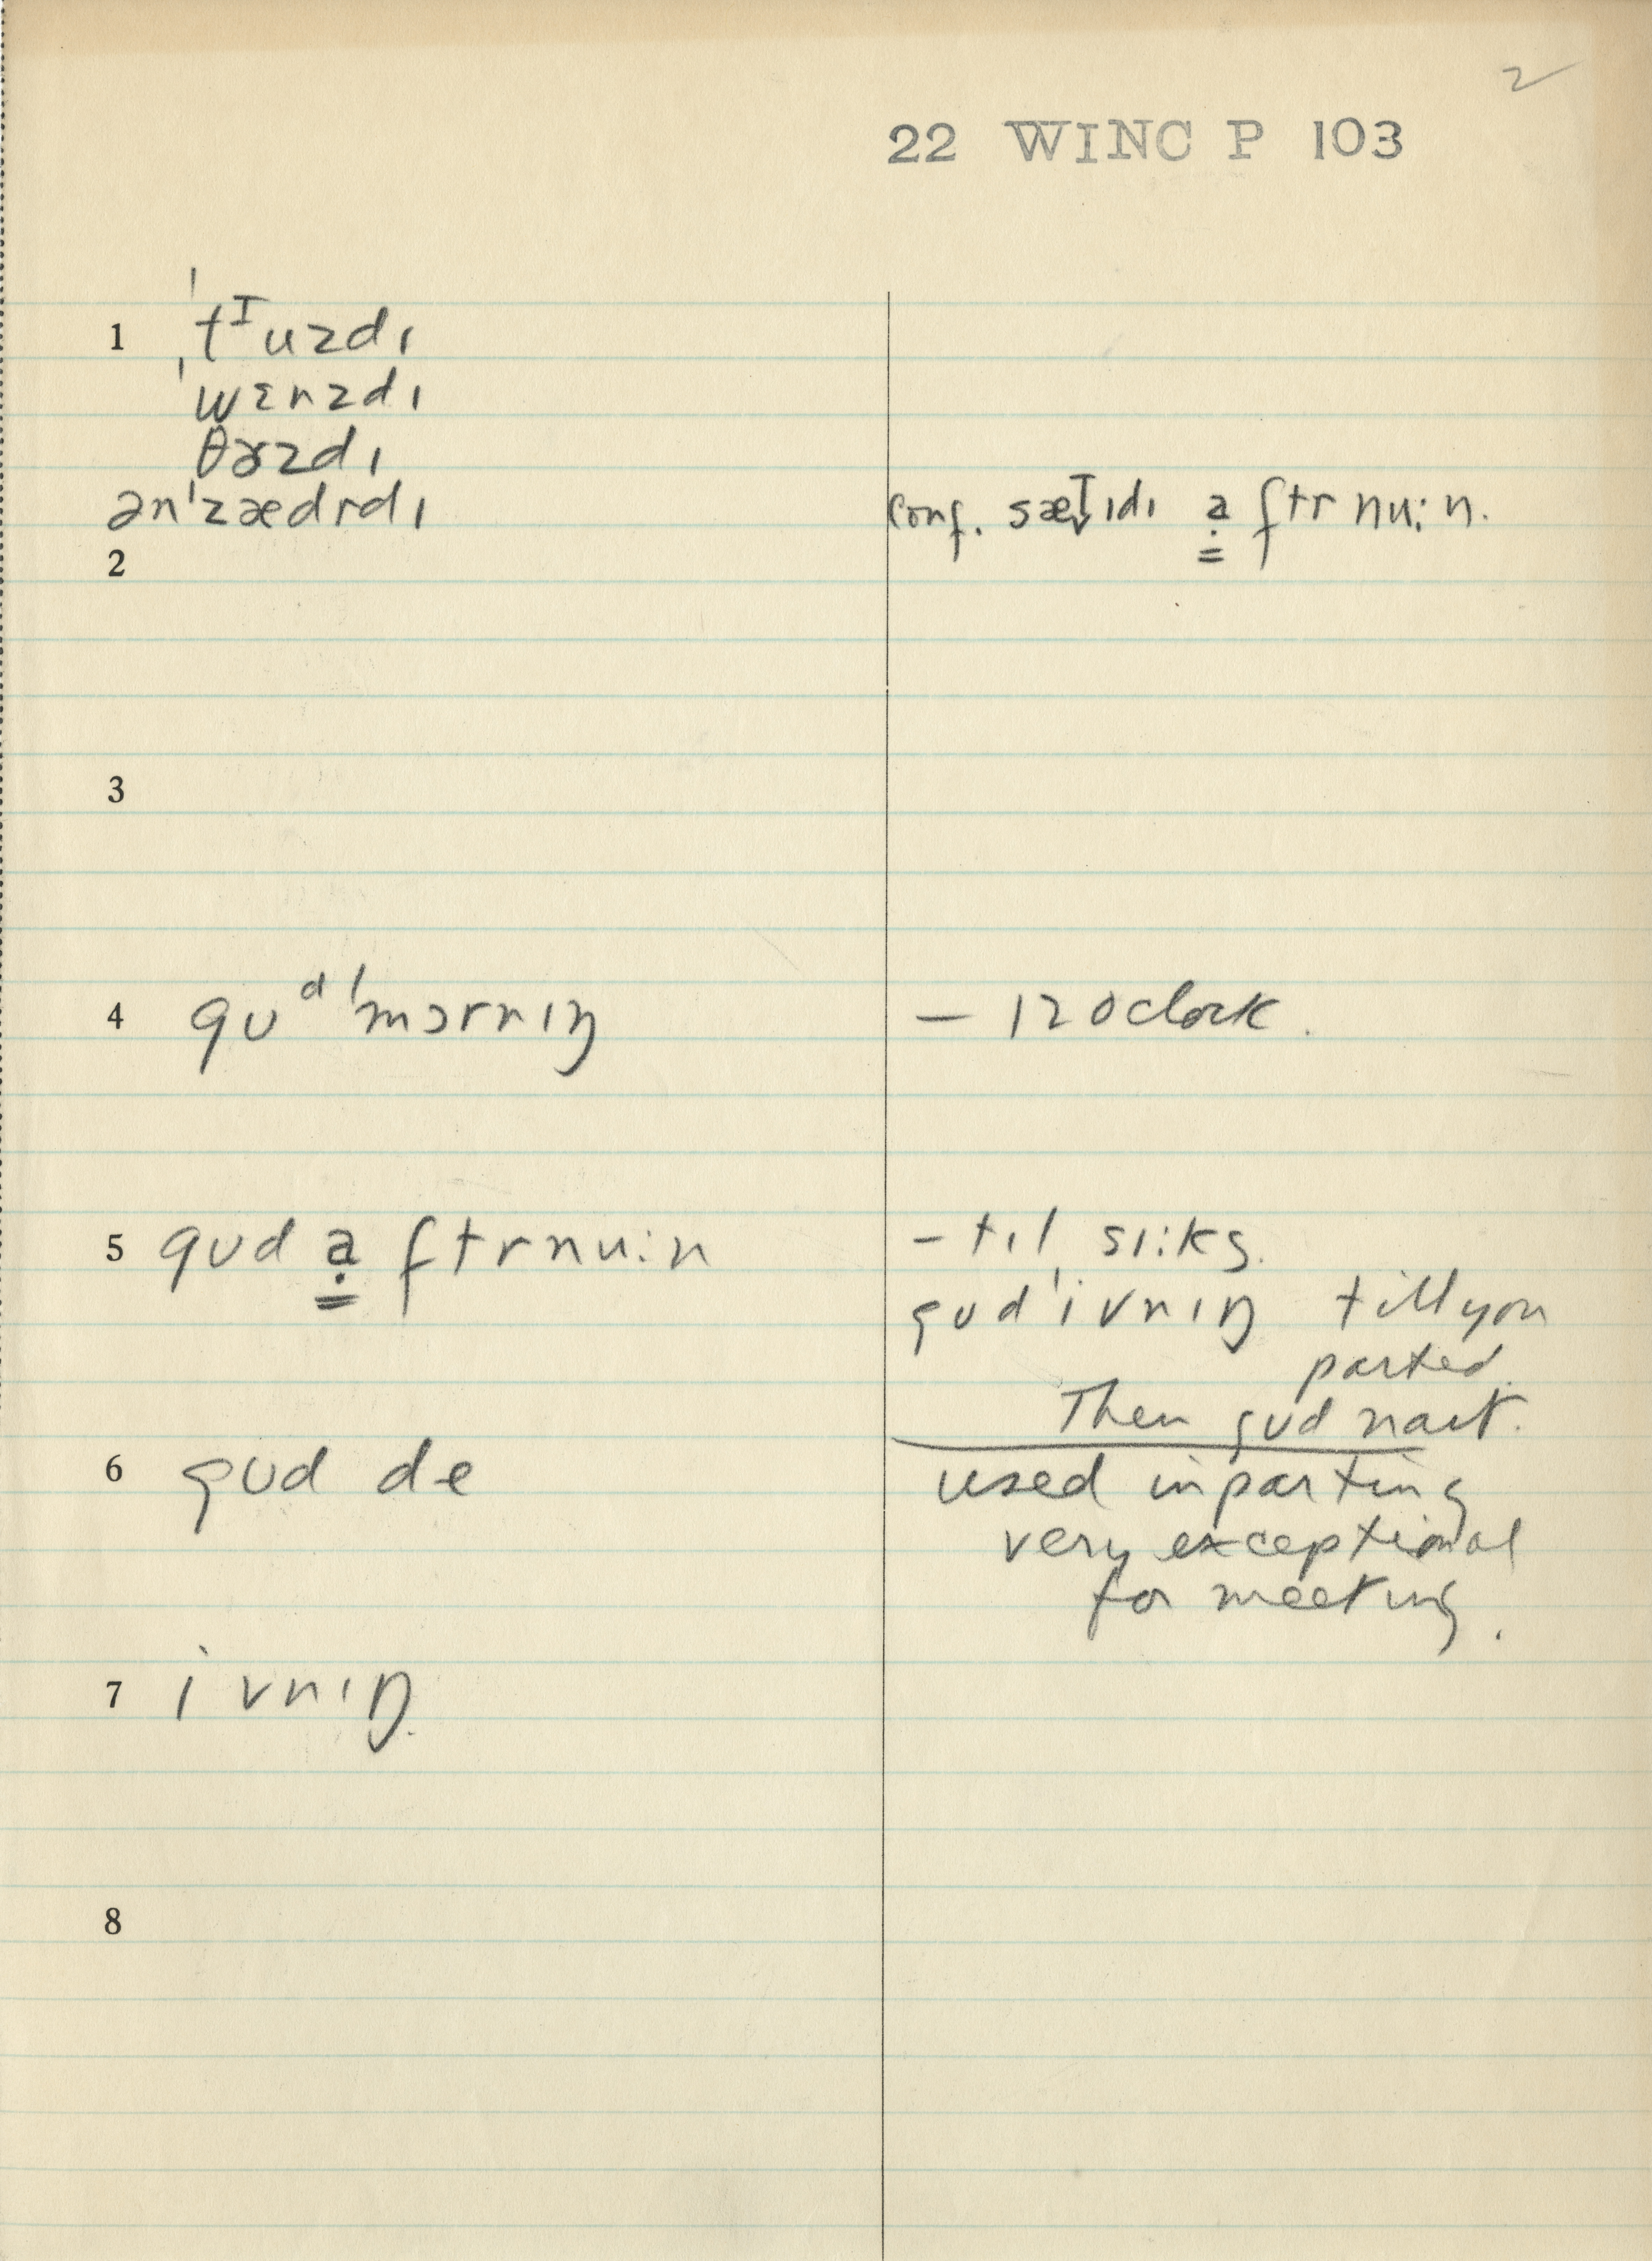 2
22 WINC P 103
1 ˈtᴵuzdɪ
ˈwɛnzdɪ
θɚzdɪ
ənˈzædrdɪ conf. sæt̬ɪdɪ a̤ftrnu:n.
2
3
4 gʊᵈˈmɔrnɪŋ – 12 oclock.
5 gʊd a̤ftrnu:n – tɪl sɪ:ks.
gʊdˈivnɪŋ till you
parted.
Then gʊd naɪt.
6 gʊd de used in parting
very exceptional
for meeting.
7 ivnɪŋ.
8